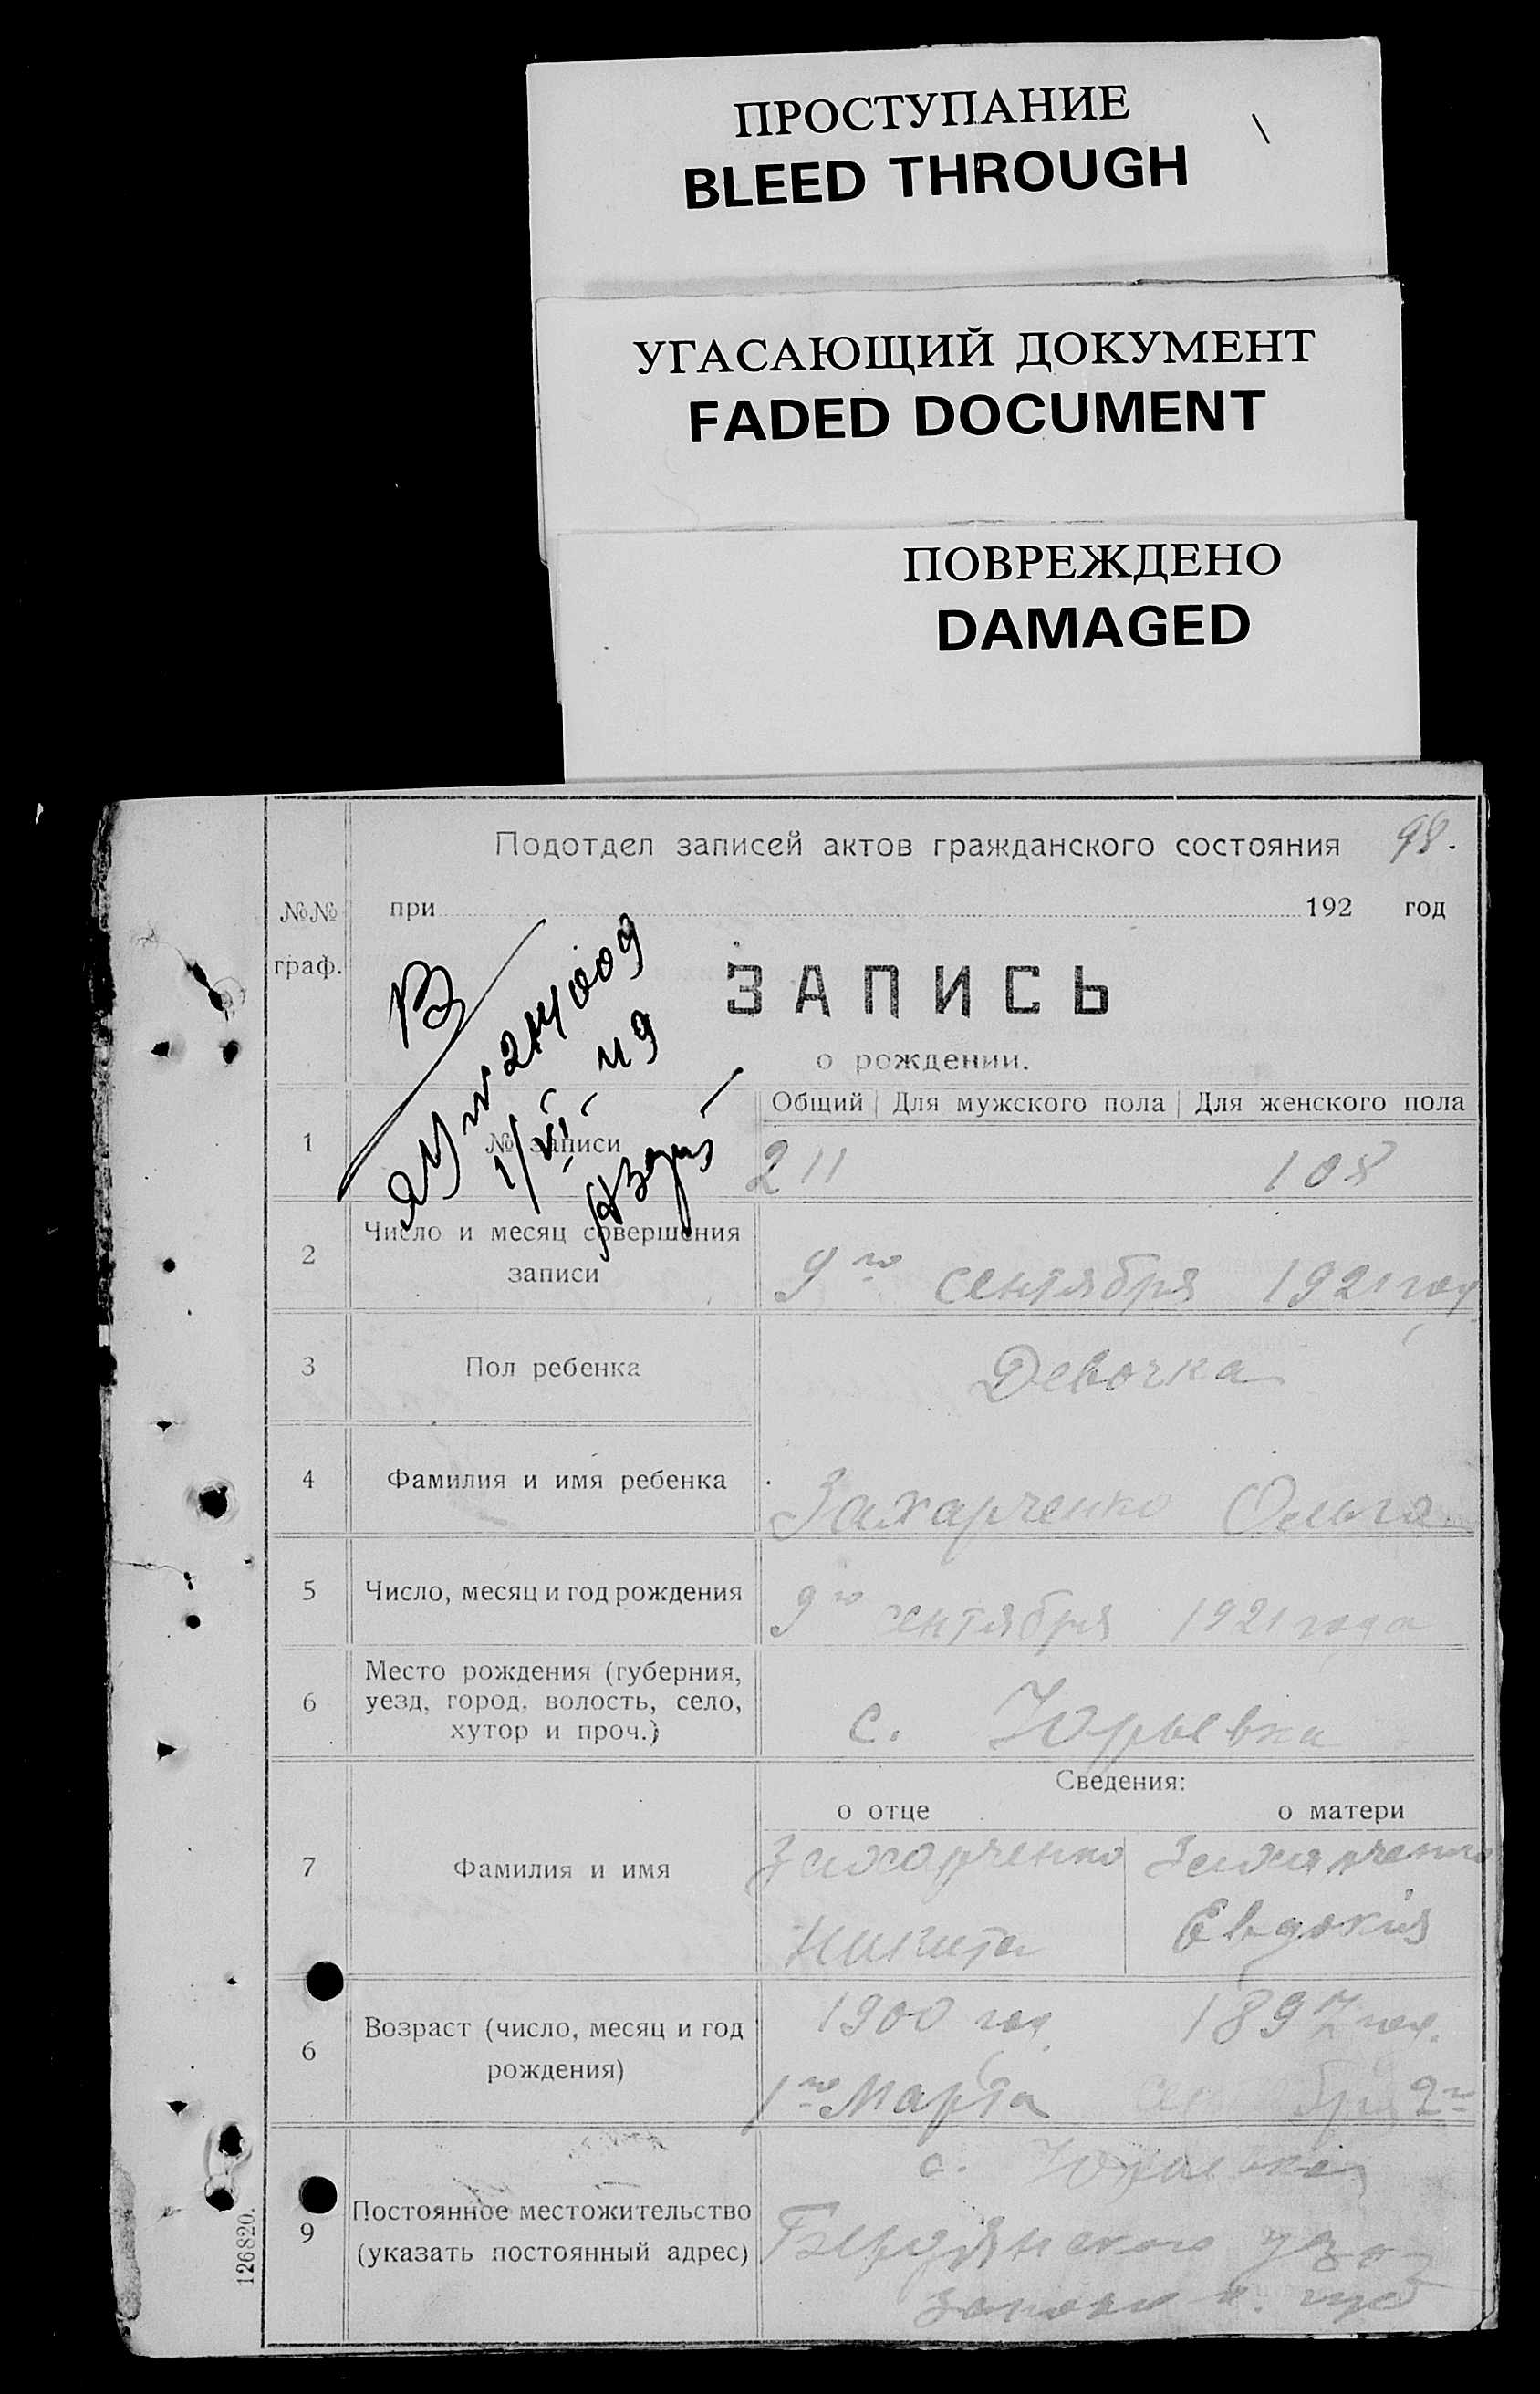 ПРОСТУПАНИЕ
BLEED THROUGH
УГАСАЮЩИЙ ДОКУМЕНТ
FADED DOCUMENT
ПОВРЕЖДЕНО
DAMAGED
Подотдел записей актов гражданского состояния 98.
№№ граф.
при 192 год
ЗАПИСЬ
о рождении.
Общий Для мужского пола Для женского пола
1 № записи 211 108
2 Число и месяц совершения
записи 9го сентября 1921 год
3 Пол ребенка Девочка
4 Фамилия и имя ребенка Захарченко Ольга
5 Число, месяц и год рождения 9го сентября 1921 года
Место рождения (губерния,
6 уезд, город, волость, село,
хутор и проч.) с. Юрьевка
Сведения:
о отце о матери
7 Фамилия и имя Захарченко Захарченко
Никита Евдокия
1900 год 1897 год.
6 Возраст (число, месяц и год
рождения) 1го Марта 2го
с. Юрьевка
9 Постоянное местожительство
(указать постоянный адрес) Бердянского
губ
126820.